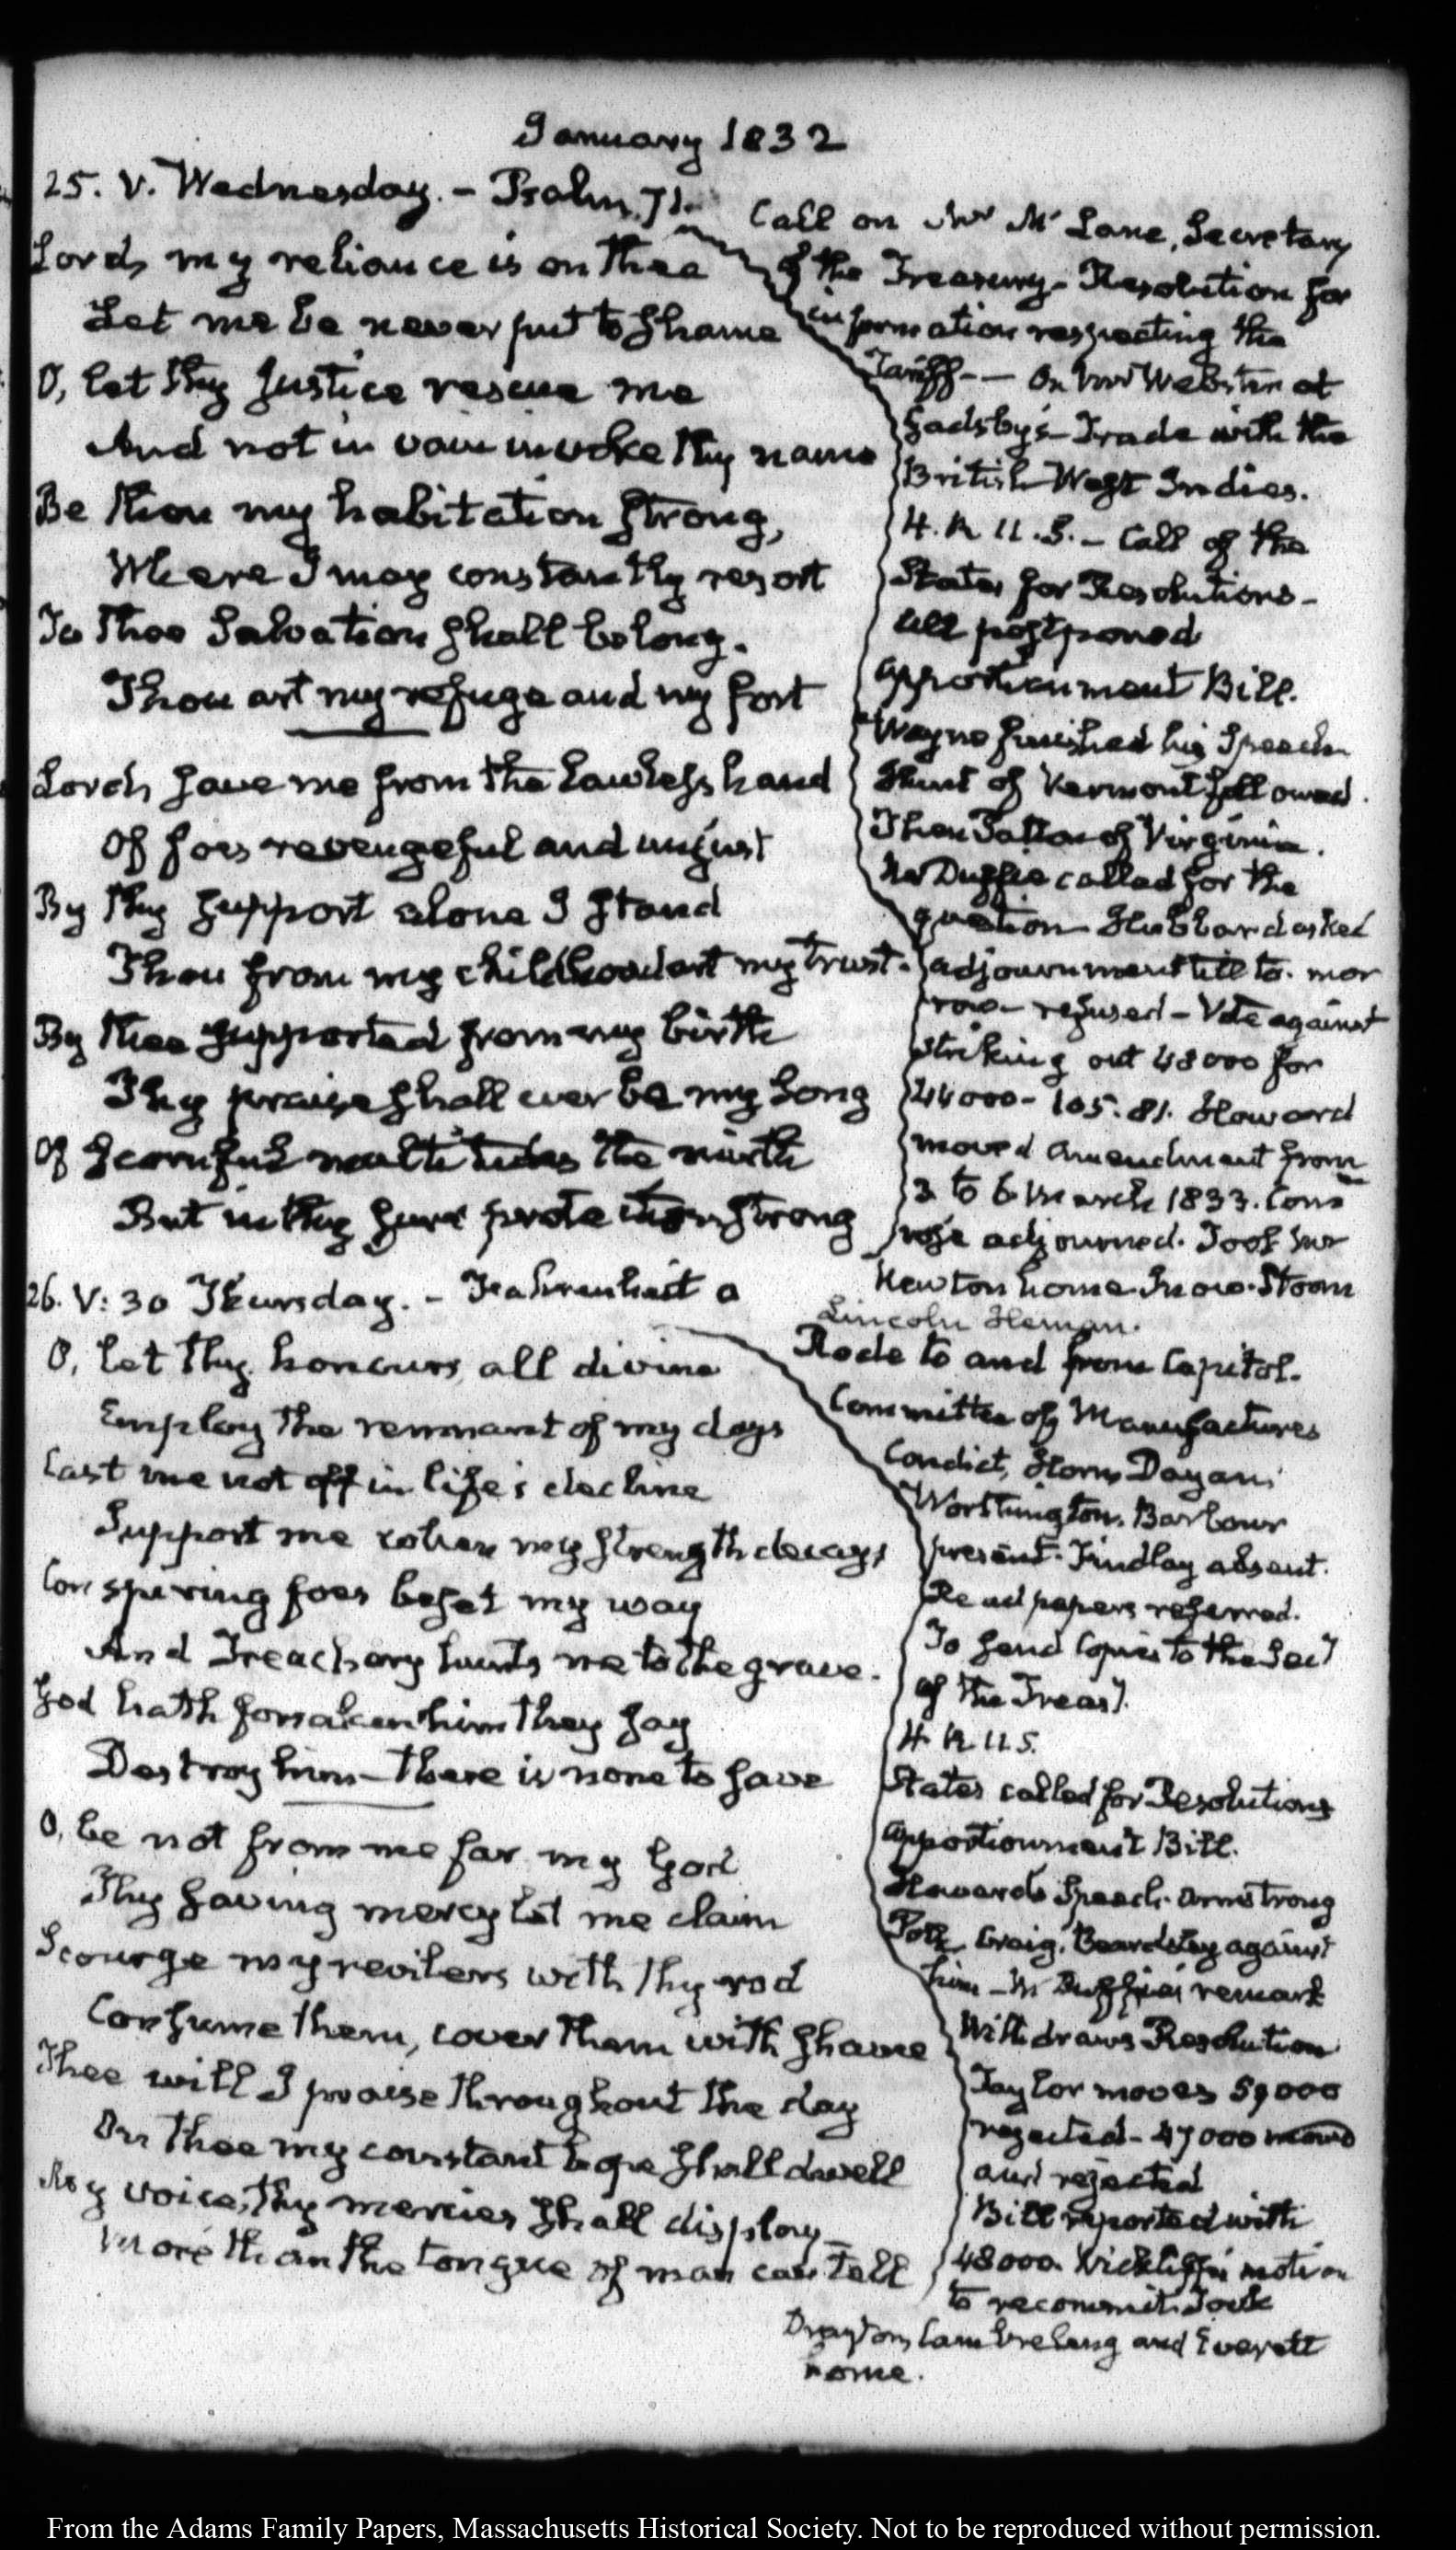 January 1832
25. V. Wednesday. - Psalm. 71.
Lord, my reliance is on thee
Let me be never put to shame
O, let thy justice rescue me
And not in vain invoke thy name
Be thou my habitation strong,
Where I may constantly resort
To Thee Salvation shall belong.
Thou art my refuge and my fort
Lord, save me from the lawless hand
Of foes revengeful and unjust
By thy support alone I stand
Thou from my childhood art my trust.
By thee supported from my birth
Thy praise shall ever be my song
Of scornful multitudes the mirth
But in thy sure protection strong
Call on Mr McLane, Secretary
of the Treasury - Resolution for
information respecting the
Tariff -- On Mr Webster at
Gadsby's - Trade with the
British West Indies.
H. R. U. S. - Call of the
States for Resolutions -
all postponed
Apportionment Bill.
Wayne finished his Speech
Hunt of Vermont followed.
Then Patton of Virginia.
McDuffie called for the
question - Hubbard asked
adjournment till to-mor
row - refused - Vote against
striking out 48000 for
44000 - 105. 81. Howard
moved amendment from
3 to 6 March 1833. Com
rose adjourned. Took Mr
Newton home. Snow-Storm
26. V: 30 Thursday. - Fahrenheit 0
O, let thy honours, all divine
Employ the remnant of my days
Cast me not off in life's decline
Support me when my strength decays
Conspiring foes beset my way
And Treachery hunts me to the grave.
God hath forsaken him they say
Destroy him - there is none to save
O, be not from me far my God
Thy saving mercy let me claim
Scourge my revilers with thy rod
Consume them, cover them with shame
Thee will I praise throughout the day
On thee my constant hope shall dwell
My voice, thy mercies shall display
More than the tongue of man can tell
Lincoln Heman.
Rode to and from Capitol.
Committee of Manufactures
Condict, Horn, Dayan,
Worthington, Barbour
present. Findlay absent.
Read papers referred.
To send Copies to the Secy
of the Treasy.
H R U S.
States called for Resolutions
Apportionment Bill.
Howards Speech. Armstrong
Polk, Craig, Beardsley against
him - McDuffie's remark
Withdraws Resolution
Taylor moves 59000
rejected - 47000 moved
and rejected
Bill reported with
48000. Wickliffe's motion
to recommit. Took
Drayton, Cambreleng and Everett
home.
From the Adams Family Papers, Massachusetts Historical Society. Not to be reproduced without permission.